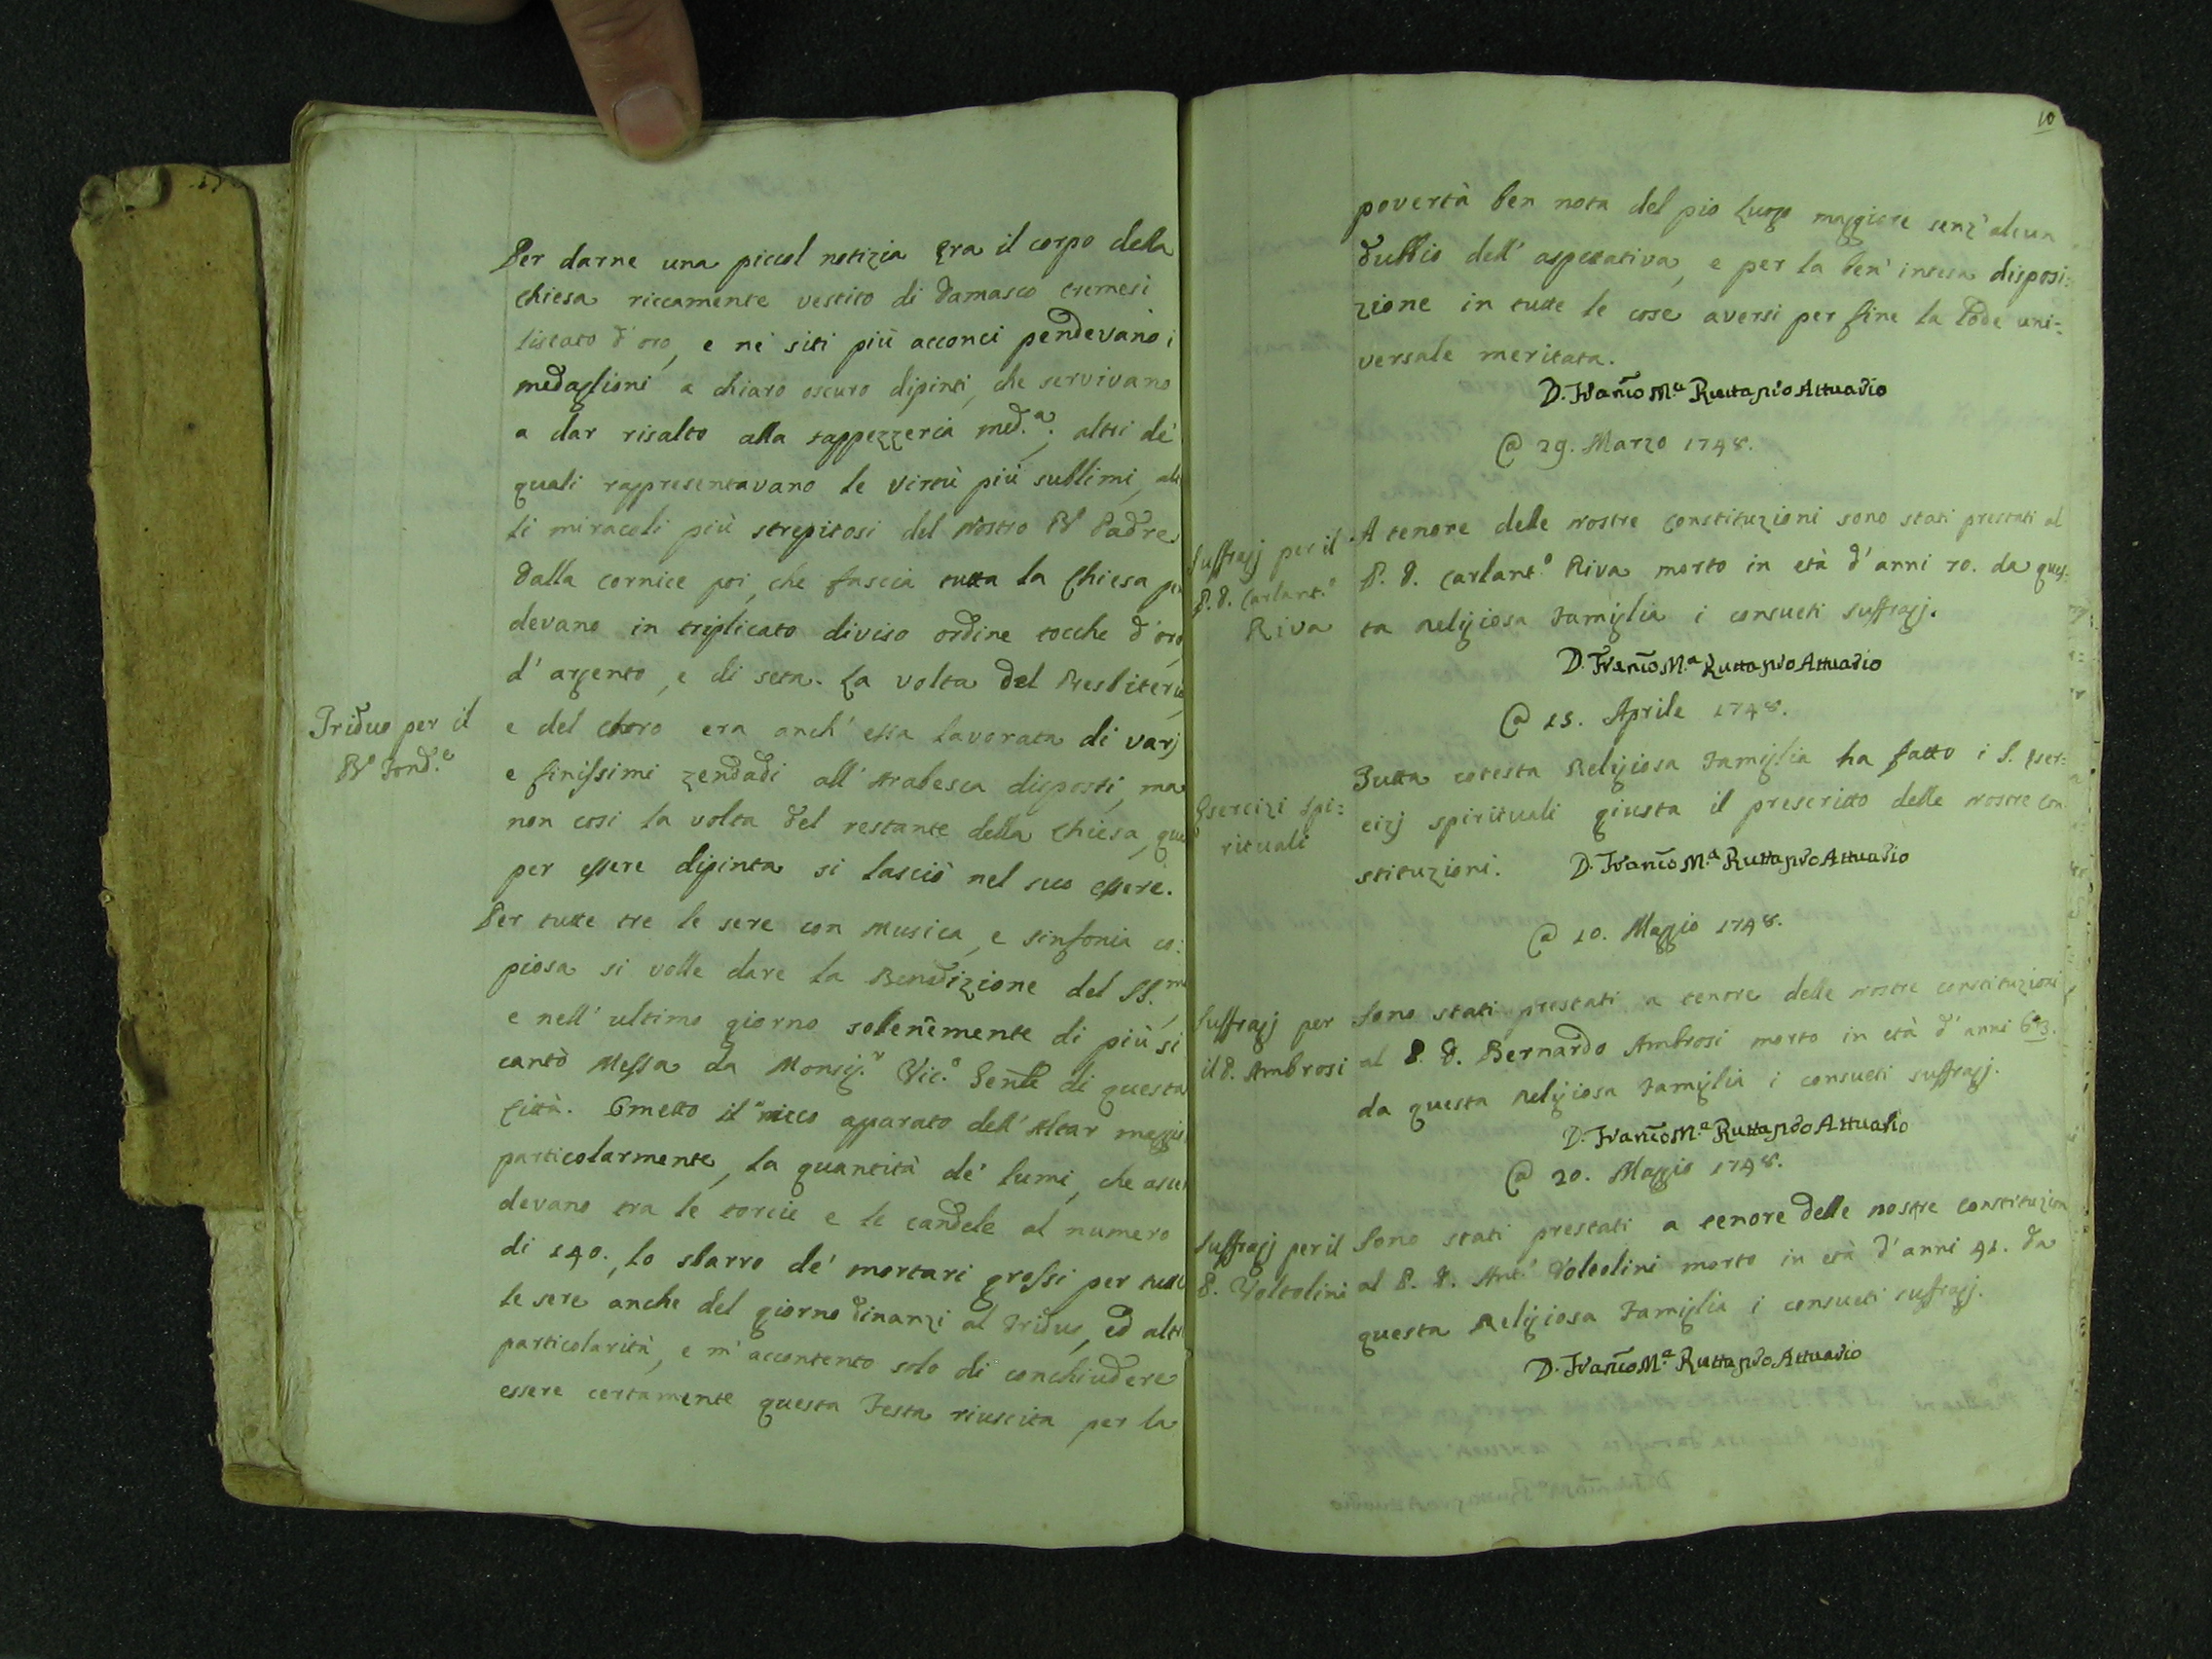 Per darne una piccol notizia Era il corpo della
Chiesa riccamente vestito di Damasco cremesi
listato d'oro, e ne' siti più acconci pendevano i
medaglioni a chiaro oscuro dipinti, che servivano
a dar risalto alla tappezzeria med.ª; altri de'
quali rappresentavano le virtù più sublimi, al
li miracoli più strepitosi del Nostro Bº Padre
Dalla cornice poi, che fascia tutta la Chiesa pe
devano in triplicato diviso ordine tocche d'oro
d'argento, e di seta. La volta del Presbiterio
Triduo per il
Bº Fond.e
e del Choro era anch'essa lavorata di varj
e finissimi zendadi all'Arabesca disposti, ma
non così la volta del restante della Chiesa, que
per essere dipinta si lasciò nel suo essere.
Per tutte tre le sere con Musica, e sinfonia co:
piosa si volle dare la Bendizione del SS.mo
e nell'ultimo giorno solenemente di più si
cantò Messa da Monsig.r Vic.º Genle di questa
Città. Ometto il ricco apparato dell'Altar maggio
particolarmente, la quantità de' lumi, che asce
devano tra le torcie e le candele al numero
di 140., lo sbarro de' mortari grossi per tutte
le sere anche del giorno dinanzi al Triduo, ed altre
particolarità, e m'accontento solo di conchiudere
essere certamente questa Festa riuscita per la
10
povertà ben nota del pio Luogo maggiore senz'alcun
dubbio dell'aspettativa, e per la ben' intesa disposi:
zione in tutte le cose aversi per fine la lode uni:
versale meritata.
D. Franco M.a Rutta pro Attuario
@ 29. Marzo 1748.
Suffragj per il
P. D. Carlant.º
Riva
A tenore delle Nostre Constituzioni sono stati prestati al
P. D. Carlant.º Riva morto in età d'anni 70. da ques:
ta Religiosa Famiglia i consueti suffragj.
D. Franco M.a Rutta pro Attuario
@ 15. Aprile 1748.
Esercizi Spi:
rituali
Tutta cotesta Religiosa Famiglia ha fatto i S. Eser:
cizj spirituali giusta il prescritto delle Nostre Con
stituzioni. D. Franco M.a Rutta pro Attuario
@ 10. Maggio 1748.
Suffragj per
il P. Ambrosi
Sono stati prestati a tenore delle nostre constituzioni
al P. D. Bernardo Ambrosi morto in età d'anni 63.
da questa Religiosa Famiglia i consueti suffragj.
D. Franco M.a Rutta pro Attuario
@ 20. Maggio 1748.
Suffragj per il
P. Voltolini
Sono stati prestati a tenore delle nostre Constituzion
al P. D. Ant.º Voltolini morto in età d'anni 41. da
questa Religiosa Famiglia i consueti suffragj.
D. Franco M.a Rutta pro Attuario